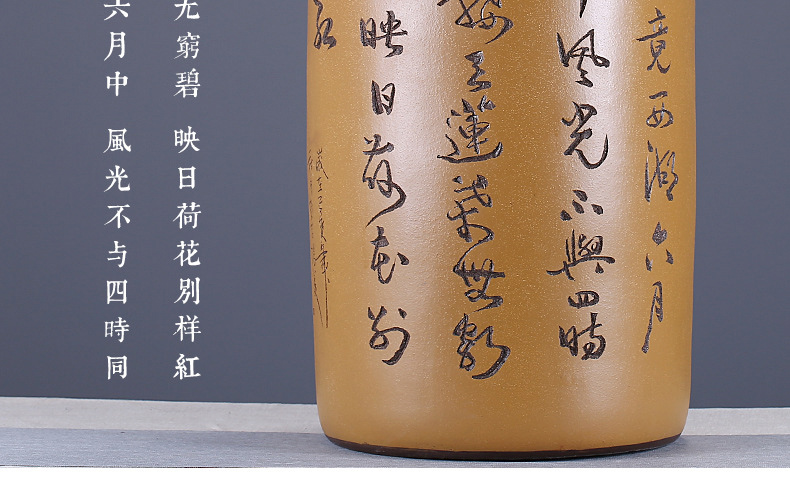 六月中 風光不与四時同
无窮碧 映日荷花別样紅
竟西湖六月
中風光不與四時
接天蓮葉無窮
映日荷花別
紅
歲在己亥